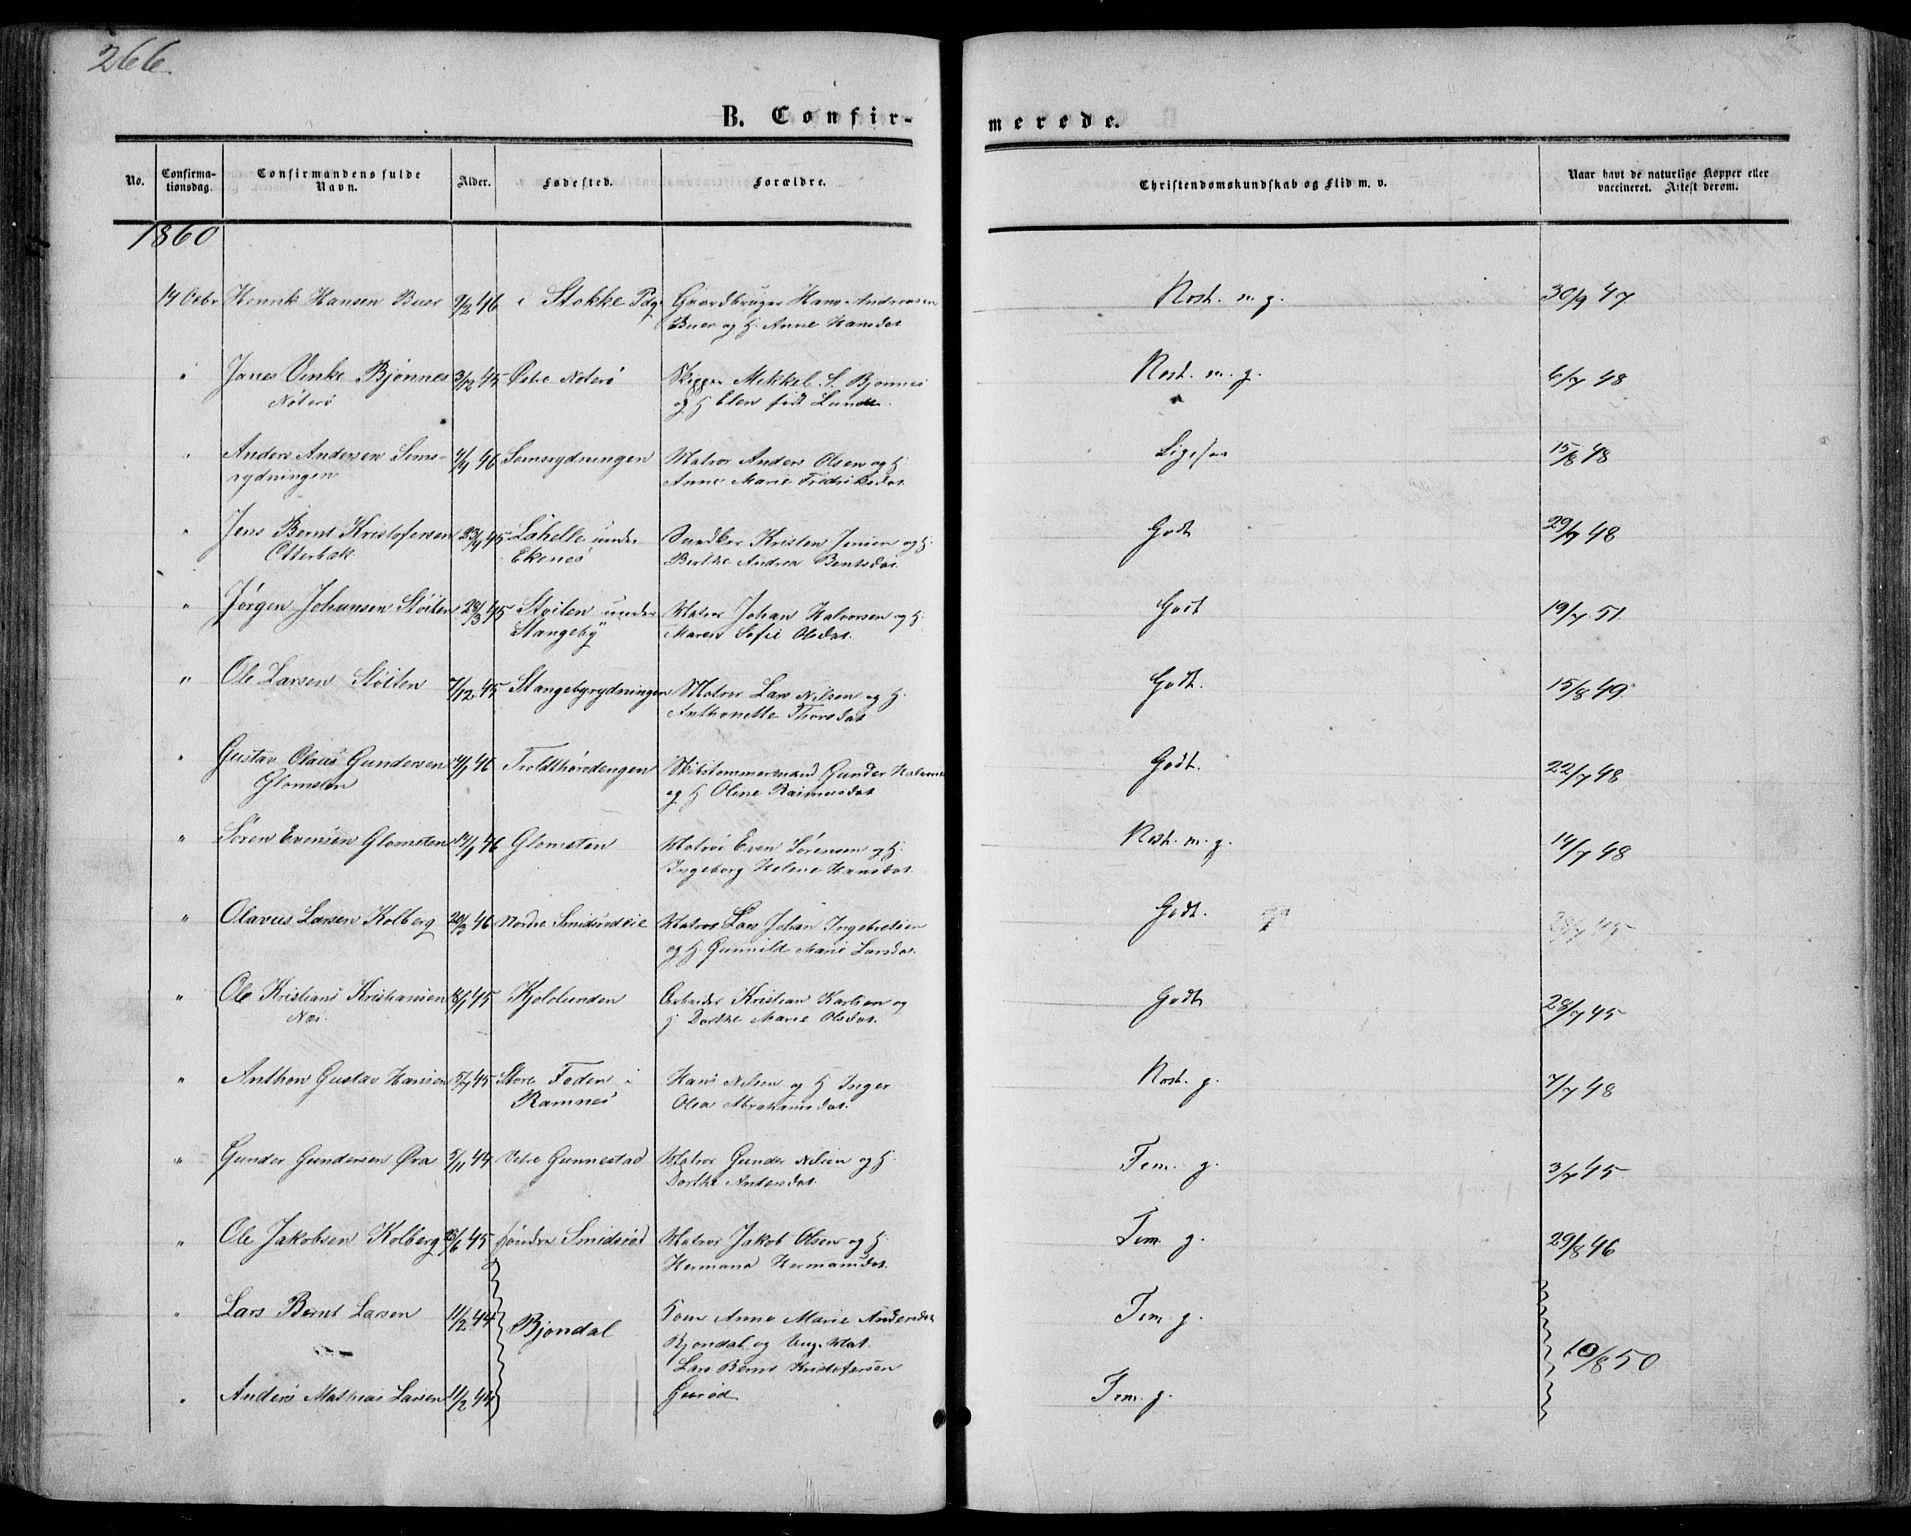 266.
B. Confir-
merede.
No.
Confirma-
tionsdag.
Confirmandens fulde
Navn.
Alder.
Fødested.
Forældre.
Christendomskundskab og Flid m. v.
Naar havt de naturlige Kopper eller
vaccineret. Attest derom.
1860
14 Octbr Henrik Hansen Buer 9/2 46 i Stokke Pdg Gaardbruger Hans Andreasen Mest. m. g. 30/9 47
Buer og H. Anne Hansdat.
" Janes Vinke Bjønnes 3/12 45 Østre Nøterø Skipper Mikkel S. Bjønnes Mest. m. g. 6/7 48
Nøterø og H Elen født Lund
" Anders Andersen Sems- 46 Semsrydningen Matros Anders Olsen og H. Ligesaa 15/8 48
rydningen Anne Marie Fredriksdat.
" Jens Bernt Kristofersen 45 Lahelle under Kristen Jensen og H. Godt 29/7 48
Otterbæk Ekenes Berthe Andrea Bentsdat.
" Jørgen Johansen Støiten 28/3 45 Støiten under Matros Johan Halvorsen og H. Godt 19/7 51
Stangeby Maren Sofie Olsdat.
" Ole Larsen Støiten 7/12 45 Stangebyrydningen Matros Lars Nilsen og H. Godt. 15/8 49
Anthonette Thorsdat
" Gustav Olaus Gundersen 46 Troldthørdengen Skibstømmermand Gunder Godt. 22/7 48
Glomsten og H Oline Rasmusdat
" Søren Evensen Glomsten 46 Glomsten Matros Even Sørensen og H. Mest. m. g. 14/7 48
Ingeborg Helene Hansdat.
" Olavus Larsen Kolberg 20/3 46 Nordre Smidsrødeie Matros Lars Johan Ingebretsen Godt. 28/7 45
og H Gunnild Marie Larsdat.
" Ole Kristians Kristiansen 45 Kjølelunden Arbeider Kristian Karlsen og Godt 28/7 45
Næs. H Dorthe Marie Olsdat.
" Anthon Gustav Hansen 45 Store Feden i Hans Nilsen og H Inger Mest. g. 7/7 48
Ramnes Olea Abrahamsdat.
" Gunder Gundersen Øra 5/11 44 Vestre Gunnestad Matros Gunder Nilsen og H. Tem. g. 3/7 45
Dorthe Antonsdat.
" Ole Jakobsen Kolberg 45 Søndre Smidsrød Matros Jakob Olsen og H. Tem. g. 29/8 46
Hermana Hermansdat.
" Lars Bernt Larsen 11/2 44 Bjøndal Anne Marie Andersdat Tem. g. 10/8 50
Bjøndal og Ung. Mat.
Lars Bernt Kristofersen
" Anders Mathias Larsen 11/2 44 Tem. g.